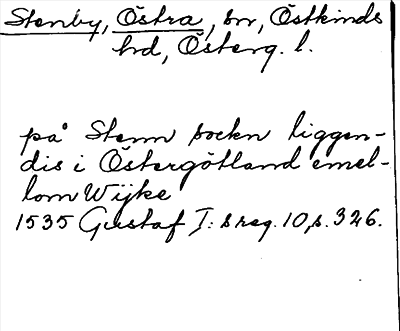 Stenby, Östra, sn, Östkinds
hd, Österg. l.
på Stenn sockn liggen-
dis i Östergötland emel-
lom Wijke
1535 Gustaf I:s reg. 10, s. 326.